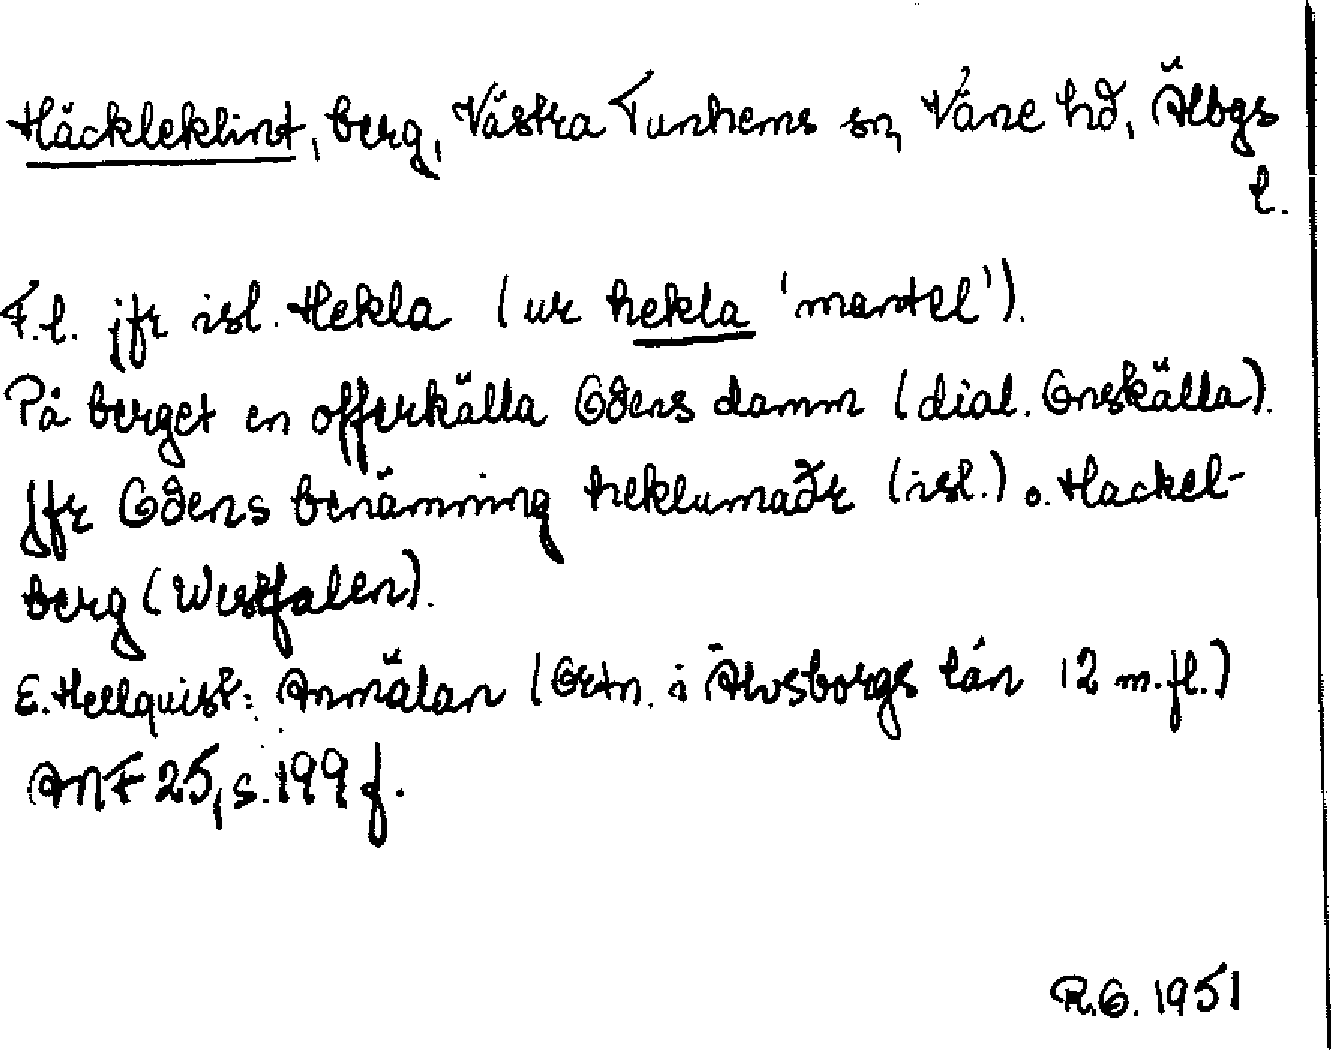 Häckleklint, berg, Västra Tunhems sn, Väne hd, Älbgs
l.
F.l. jfr isl. Hekla (ur hekla 'mantel').
På berget en offerkälla Odens damm (dial. Onskälla).
Jfr Odens benämning heklumaðr (isl.) o. Hackel-
berg (Westfalen).
E. Hellquist: Anmälan (Ortn. i Älvsborgs län 12 m.fl.)
ANF 25, s. 199 f.
R.O. 1951